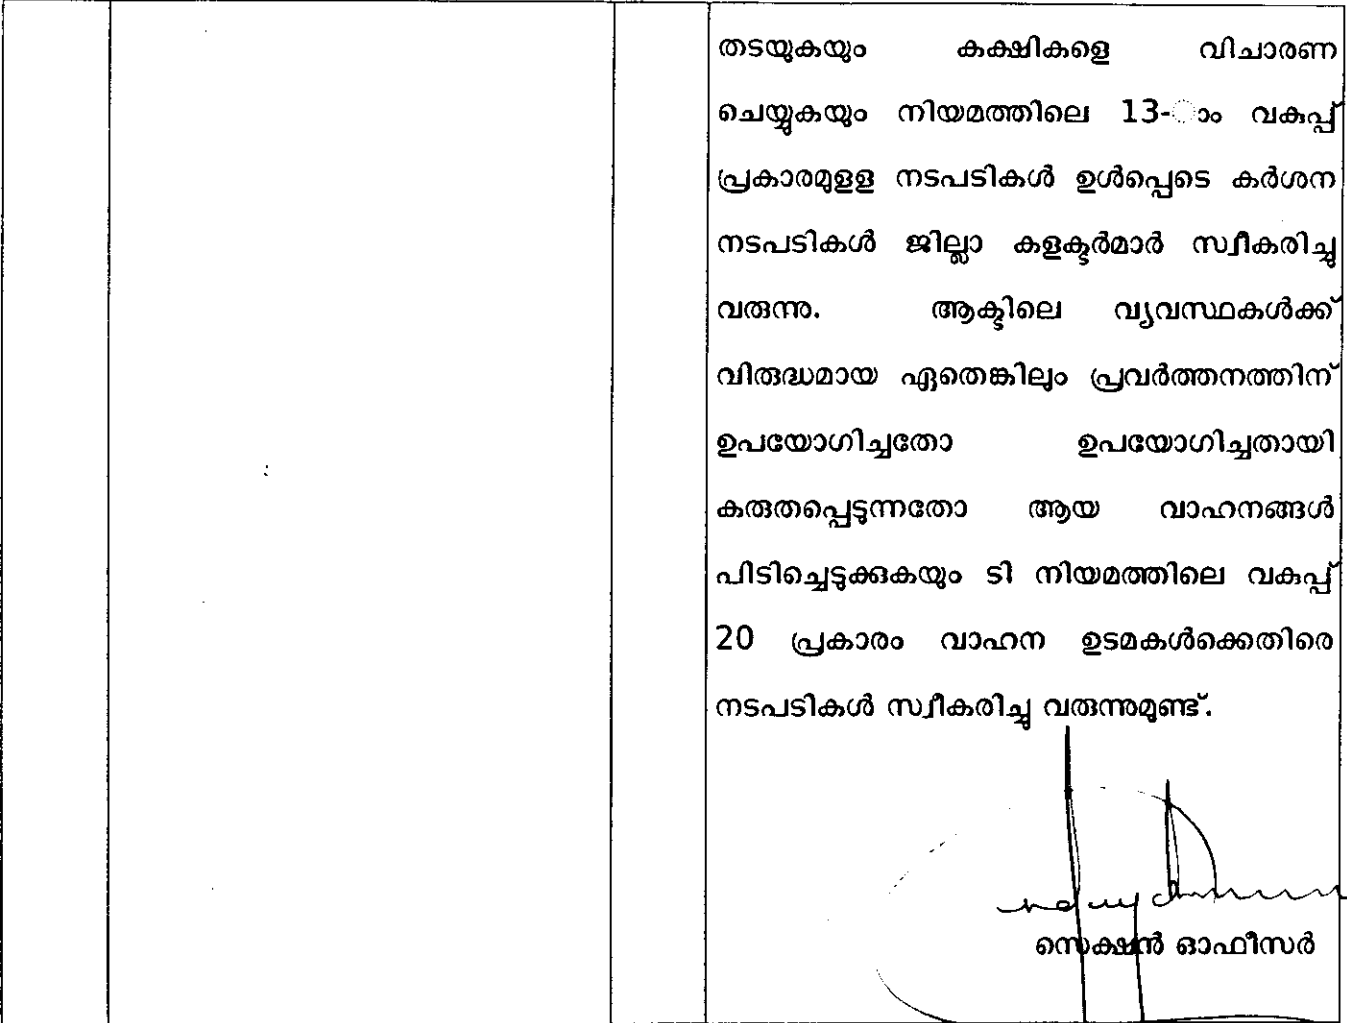 തടയുകയും കക്ഷികളെ വിചാരണ
ചെയ്യുകയും നിയമത്തിലെ 13-ാം വകുപ്പ്
പ്രകാരമുളള നടപടികൾ ഉൾപ്പെടെ കർശന
നടപടികൾ ജില്ലാ കളക്ടർമാർ സ്വീകരിച്ചു
വരുന്നു. ആക്ടിലെ വ്യവസ്ഥകൾക്ക്
വിരുദ്ധമായ ഏതെങ്കിലും പ്രവർത്തനത്തിന്
ഉപയോഗിച്ചതോ ഉപയോഗിച്ചതായി
കരുതപ്പെടുന്നതോ ആയ വാഹനങ്ങൾ
പിടിച്ചെടുക്കുകയും ടി നിയമത്തിലെ വകുപ്പ്
20 പ്രകാരം വാഹന ഉടമകൾക്കെതിരെ
നടപടികൾ സ്വീകരിച്ചു വരുന്നുമുണ്ട്.
സെക്ഷൻ ഓഫീസർ